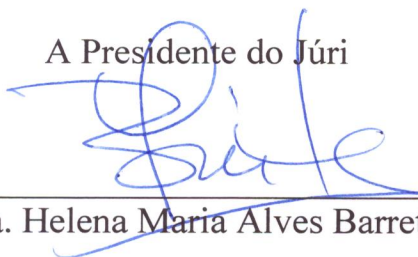 A Presidente do Júri
a. Helena Maria Alves Barret